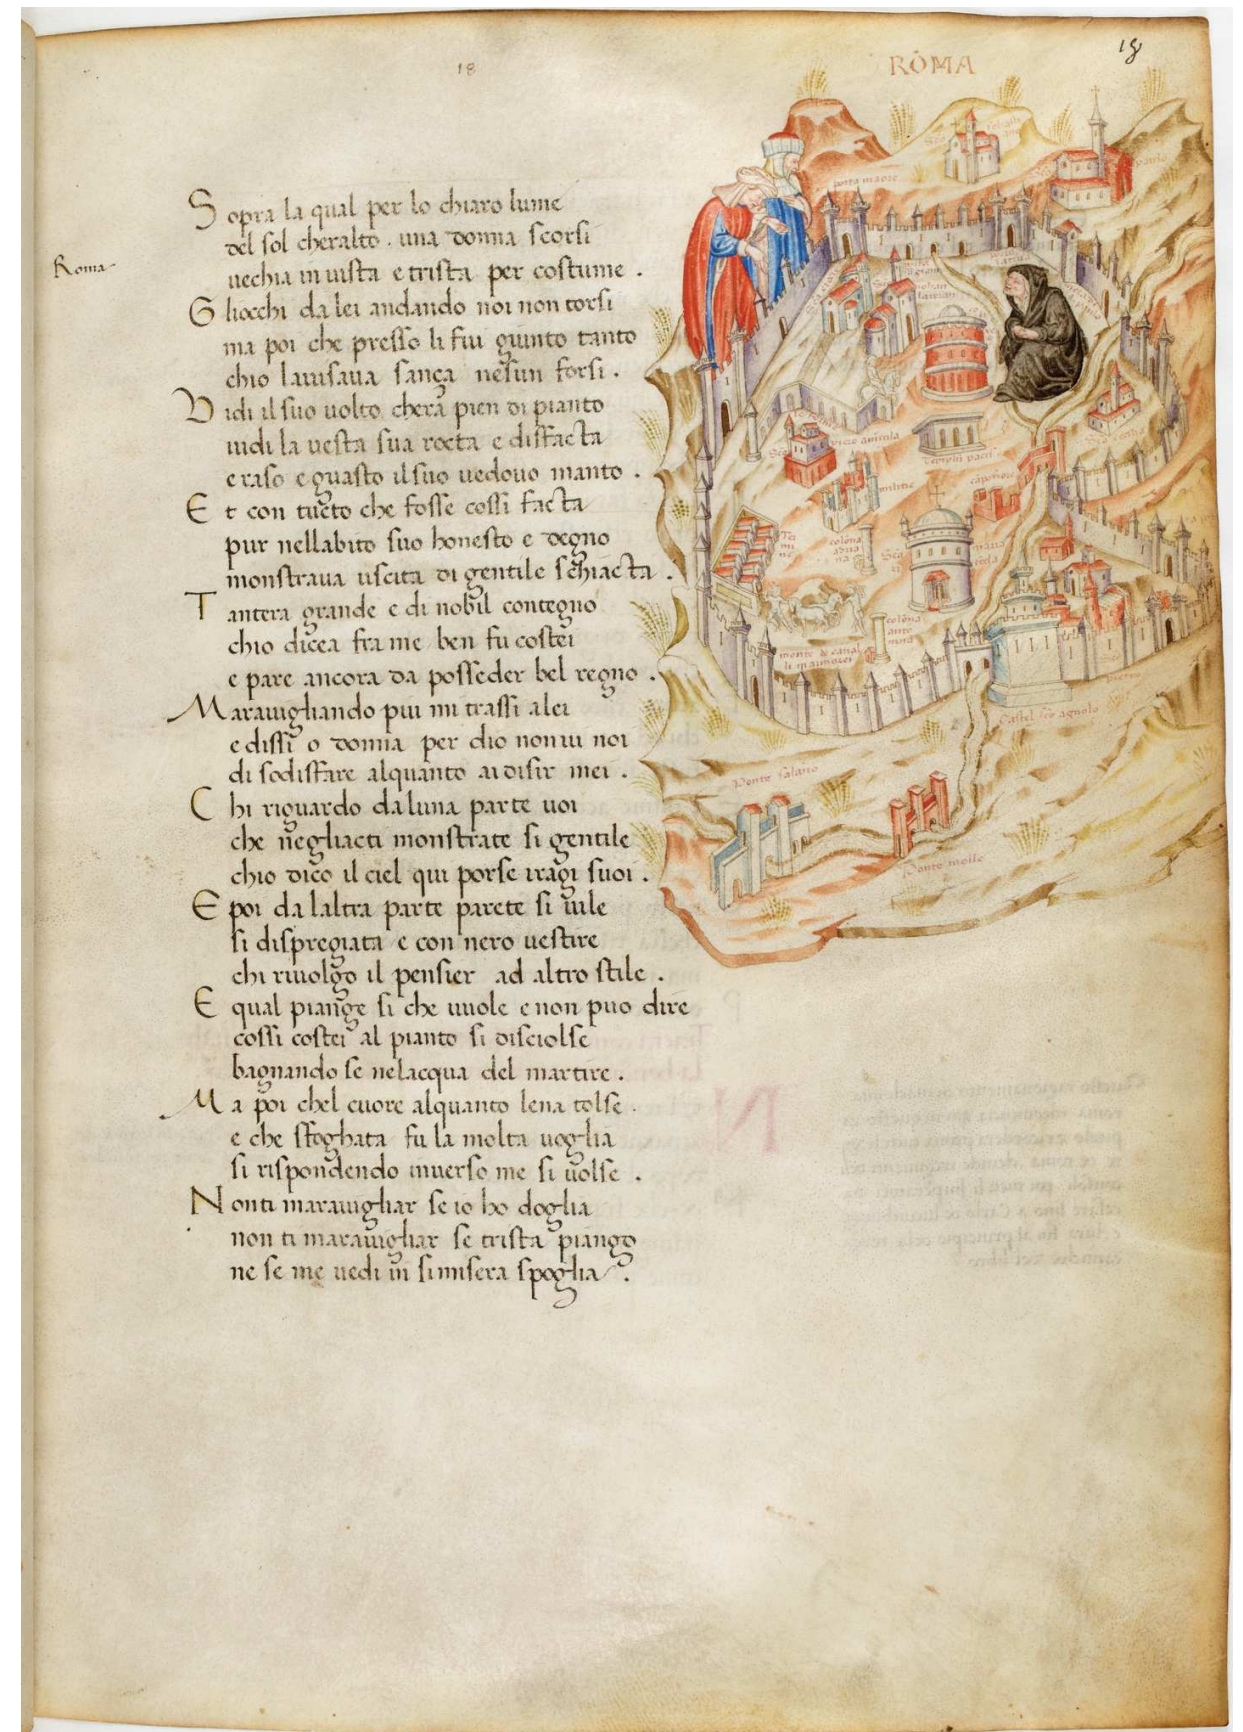 18
18
ROMA
Roma
Sopra la qual per lo chiaro lume
del sol cheralto . una donna scorsi
uechia in uista e trista per costume .
Gliocchi da lei andando noi non torsi
ma poi che presso li fui giunto tanto
chio lauisaua sança nesun forsi .
Vidi il suo uolto chera pien di pianto
uidi la uesta sua rocta e disfacta
e raso e guasto il suo uedouo manto .
Et con tucto che fosse cossi facta
pur nellabito suo honesto e degno
monstraua uscita di gentile schiacta .
Tantera grande e di nobil contegno
chio dicea fra me ben fu costei
e pare ancora da posseder bel regno .
Marauigliando piu mi trassi alei
e dissi o donna per dio non ui noi
di sodisfare alquanto ai disir mei .
Chi riguardo da luna parte uoi
che negliacti monstrate si gentile
chio dico il ciel qui porse iragi suoi .
E poi da laltra parte parete si uile
si dispregiata e con nero uestire
chi riuolgo il pensier ad altro stile .
E qual piange si che uuole e non puo dire
cossi costei al pianto si disciolse
bagnando se nelacqua del martire .
Ma poi chel cuore alquanto lena tolse .
e che sfoghata fu la molta uoglia
si rispondendo inuerso me si uolse .
Non ti marauigliar se io ho doglia
non ti marauigliar se trista piango
ne se me uedi in si misera spoglia .
porta maore
paulo
templū pacis
militie
capitolio
Te
colōna
adria
na
Sca
maria
colōna
anto
nina
monte de caual
li marmorei
Castel sco agnolo
Ponte salaro
Ponte molle